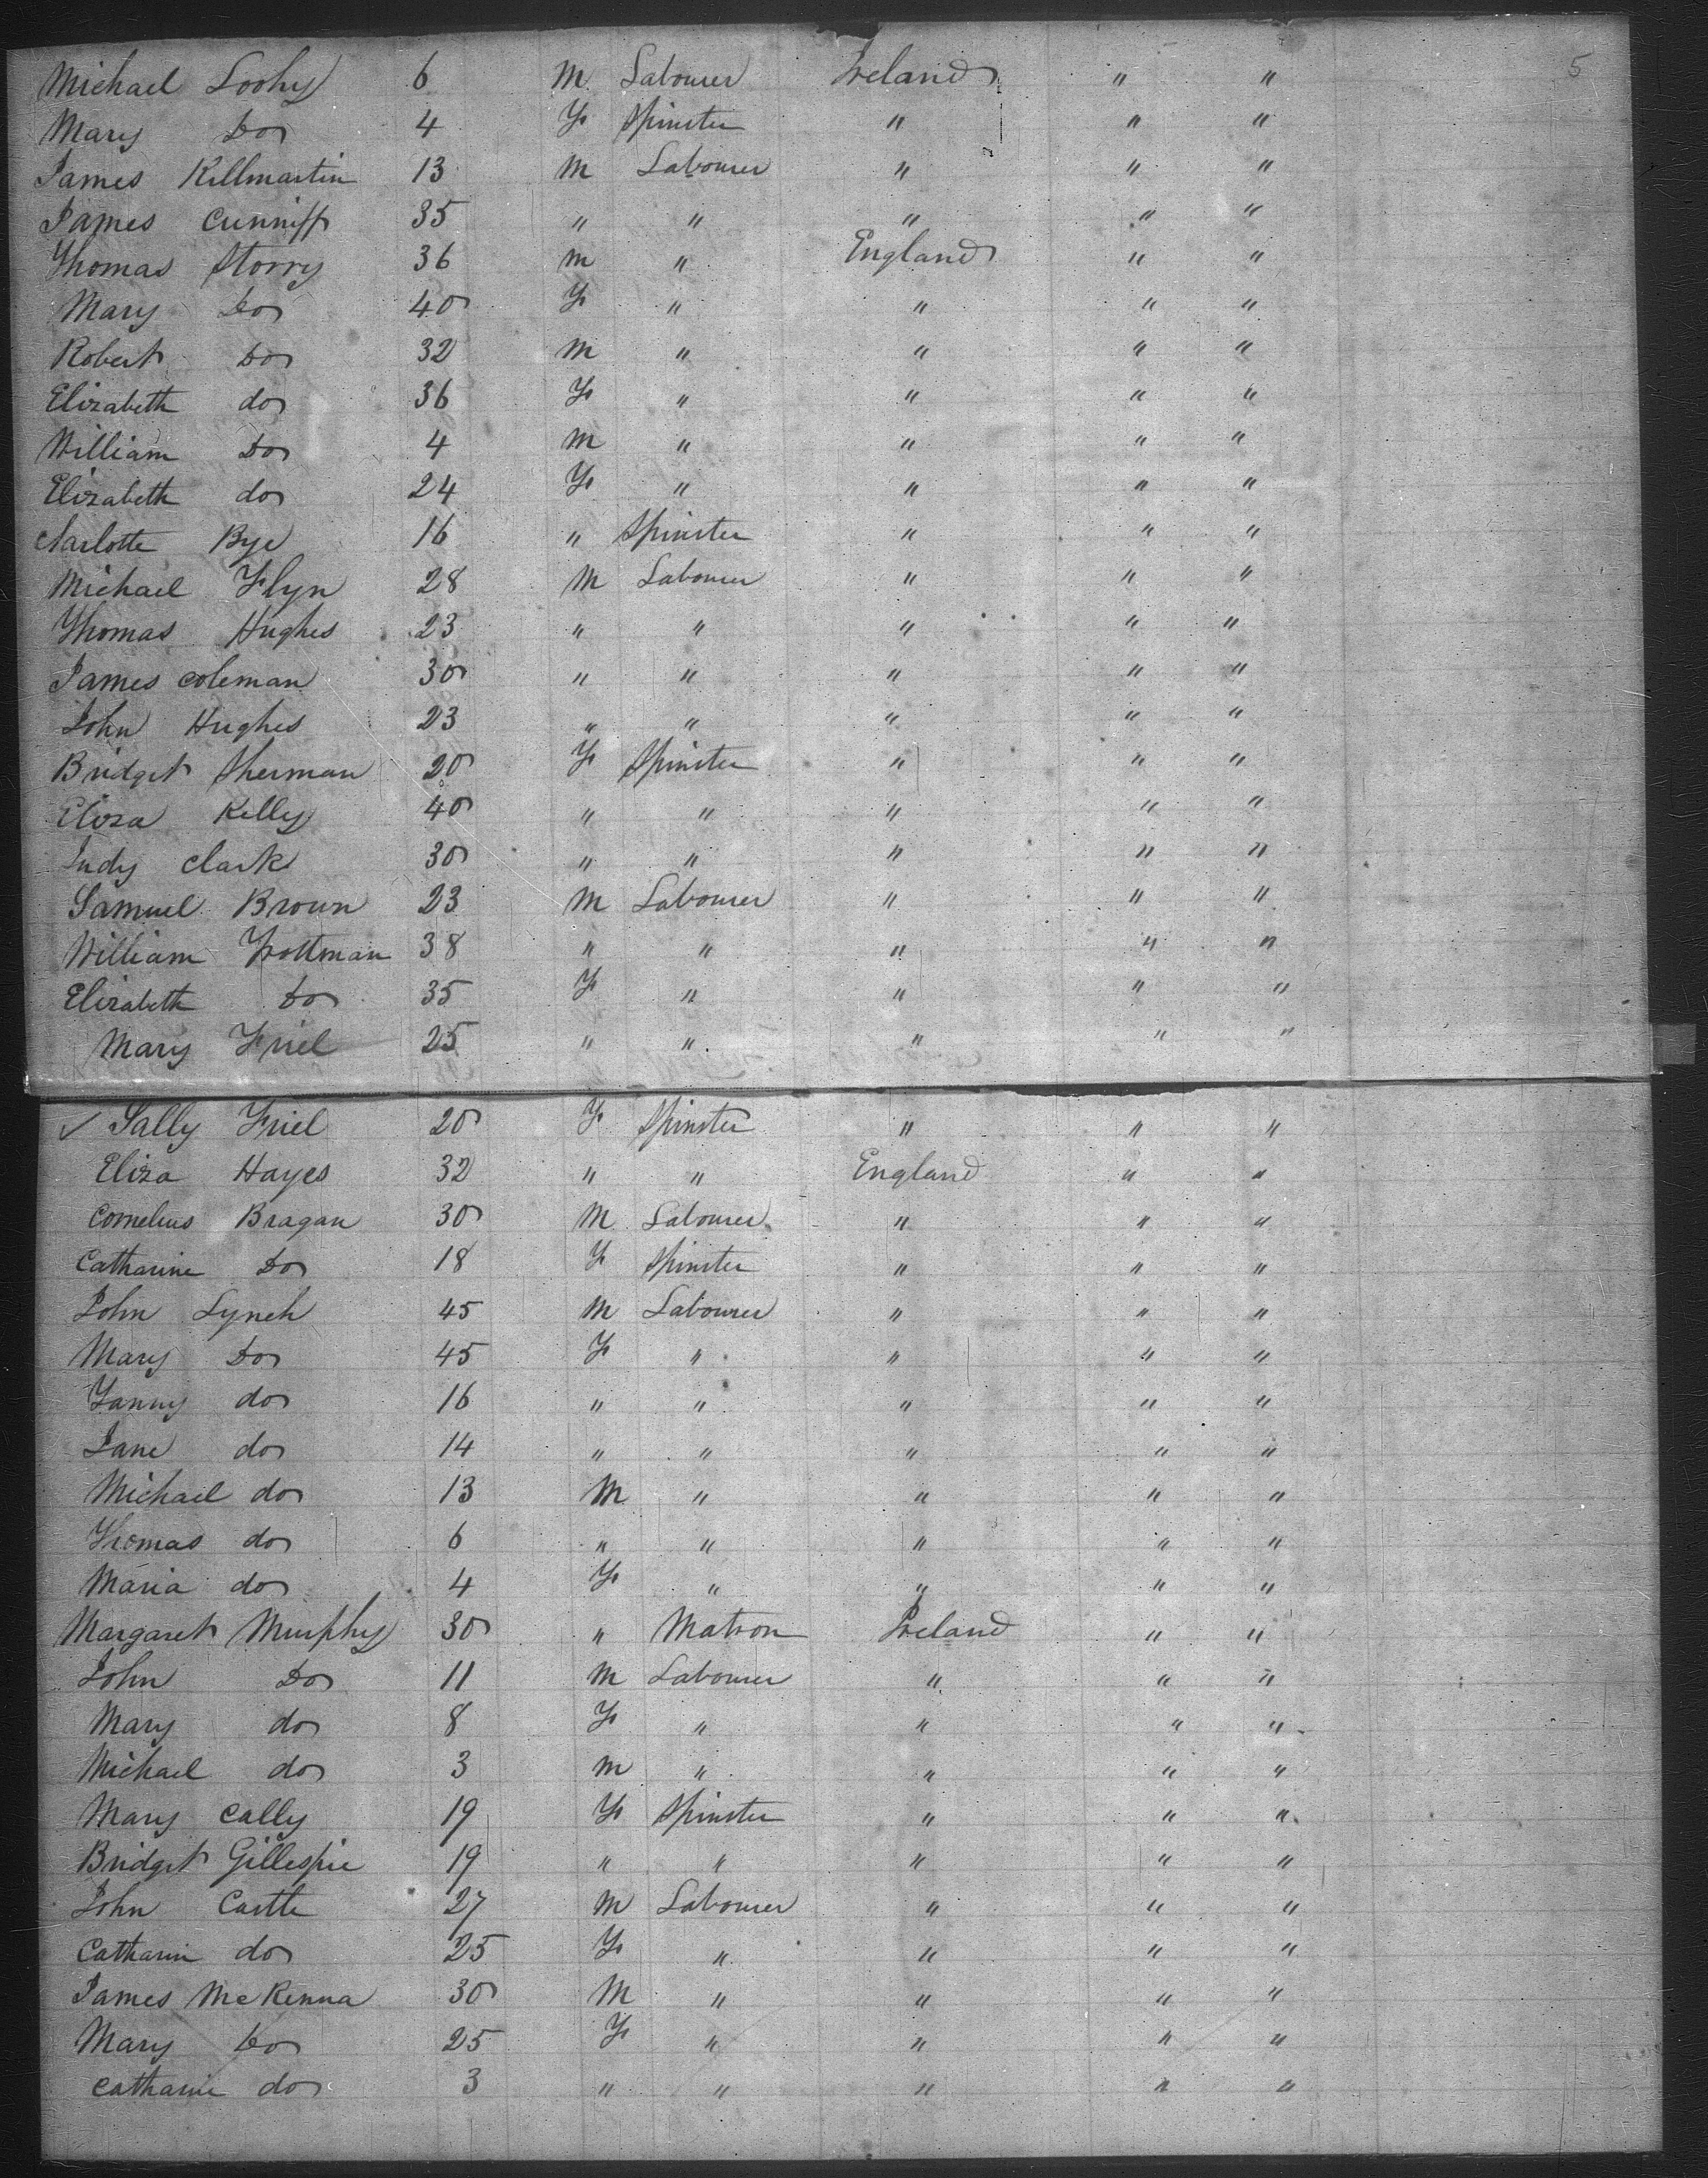 5
Michael Loohy 6 M Labourer Ireland " "
Mary Do 4 F Spinster " " "
James Killmartin 13 M Labourer " " "
James Cunniff 35 " " " " "
Thomas Storry 36 m " England " "
Mary Do 40 F " " " "
Robert Do 32 M " " " "
Elizabeth do 36 F " " " "
William Do 4 M " " " "
Elizabeth do 24 F " " " "
Charlotte Bye 16 " Spinster " " "
Michael Flyn 28 M Labourer " " "
Thomas Hughes 23 " " " " "
James Coleman 30 " " " " "
John Hughes 23 " " " " "
Bridget Sherman 20 F Spinster " " "
Eliza Kelly 40 " " " " "
Judy Clark 30 " " " " "
Samuel Brown 23 M Labourer " " "
William Trottman 38 " " " " "
Elizabeth Do 35 F " " " "
Mary Friel 25 " " " " "
✓ Sally Friel 20 F Spinster " " "
Eliza Hayes 32 " " England " "
Cornelius Bragan 30 M Labourer " " "
Catharine Do 18 F Spinster " " "
John Lynch 45 M Labourer " " "
Mary Do 45 F " " " "
Fanny do 16 " " " " "
Jane do 14 " " " " "
Michael do 13 M " " " "
Thomas do 6 " " " " "
Maria do 4 F " " " "
Margaret Murphy 30 " Matron Ireland " "
John Do 11 M Labourer " " "
Mary do 8 F " " " "
Michael do 3 m " " " "
Mary Cally 19 F Spinster " " "
Bridget Gillespie 19 " " " " "
John Castle 27 M Labourer " " "
Catharin do 25 F " " " "
James McKenna 30 M " " " "
Mary Do 25 F " " " "
Catharin do 3 " " " " "